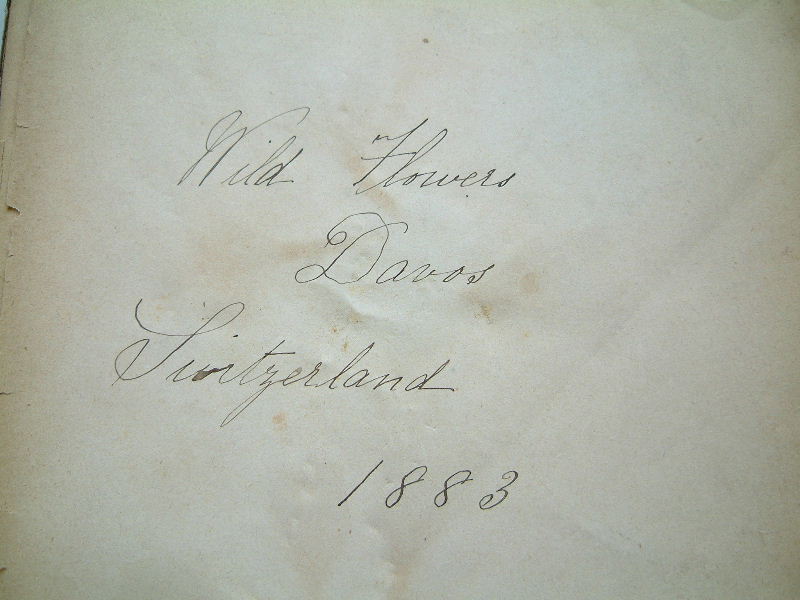 Wild Flowers
Davos
Switzerland
1883